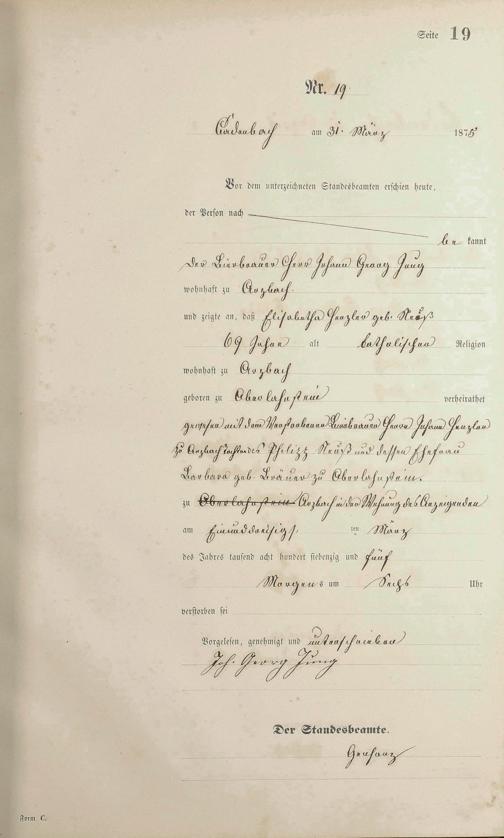 Seite 19
Nr. 19
Cadenbach am 31. März 1875
Vor dem unterzeichneten Standesbeamten erschien heute,
der Person nach
be kannt
der Bierbrauer Herr Johann Georg Jung
wohnhaft zu Arzbach
und zeigte an, daß Elisabetha Henzler geb. Neuß
69 Jahre alt katholischer Religion
wohnhaft zu Arzbach
geboren zu Oberlahnstein verheirathet
gewesen mit dem Verstorbenen Bierbrauer Herrn Johann Henzler
zu Arzbach Tochter des Philipp Neuß und dessen Ehefrau
Barbara geb. Bräuer zu Oberlahnstein.
zu Oberlahnstein Arzbach in der Wohnung des Anzeigenden
am Einunddreißigsten März
des Jahres tausend acht hundert siebenzig und fünf
Morgens um Sechs Uhr
verstorben sei
Vorgelesen, genehmigt und unterschrieben
Joh. Georg Jung
Der Standesbeamte.
Form C.